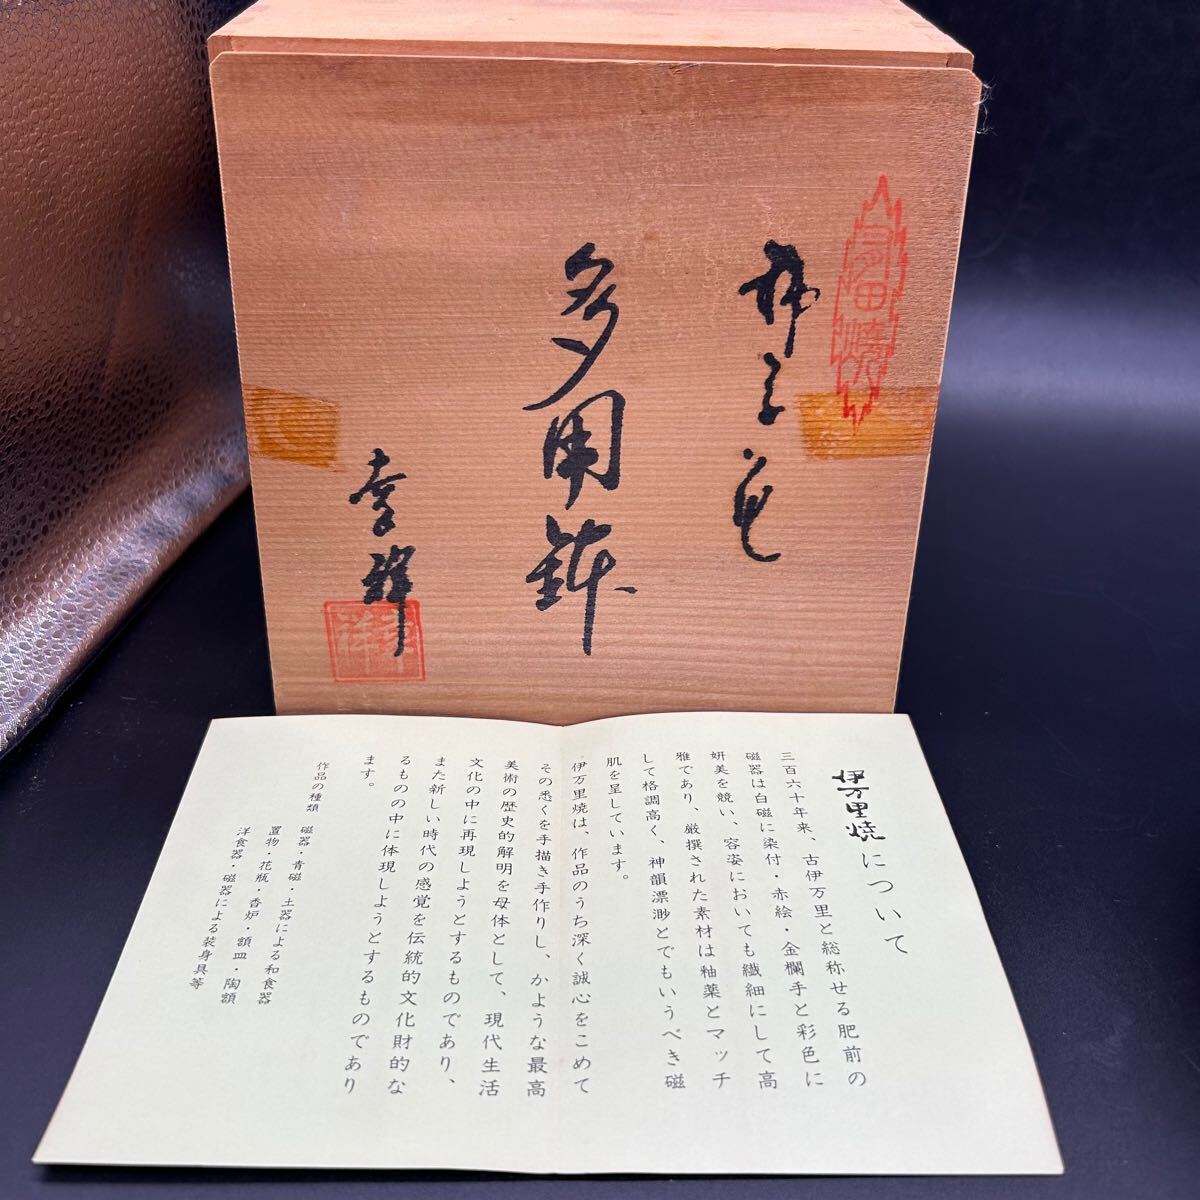 有田焼
多用鉢
幸祥
伊万里焼について
三百六十年来、古伊万里と総称せる肥前の
磁器は白磁に染付・赤絵・金欄手と彩色に
妍美を競い、容姿においても繊細にして高
雅であり、厳撰された素材は釉薬とマッチ
して格調高く、神韻漂渺とでもいうべき磁
肌を呈しています。
伊万里焼は、作品のうち深く誠心をこめて
その悉くを手描き手作りし、かような最高
美術の歴史的解明を母体として、現代生活
文化の中に再現しようとするものであり、
また新しい時代の感覚を伝統的文化財的な
るものの中に体現しようとするものであり
ます。
作品の種類　磁器・青磁・土器による和食器
置物・花瓶・香炉・額皿・陶額
洋食器・磁器による装身具等